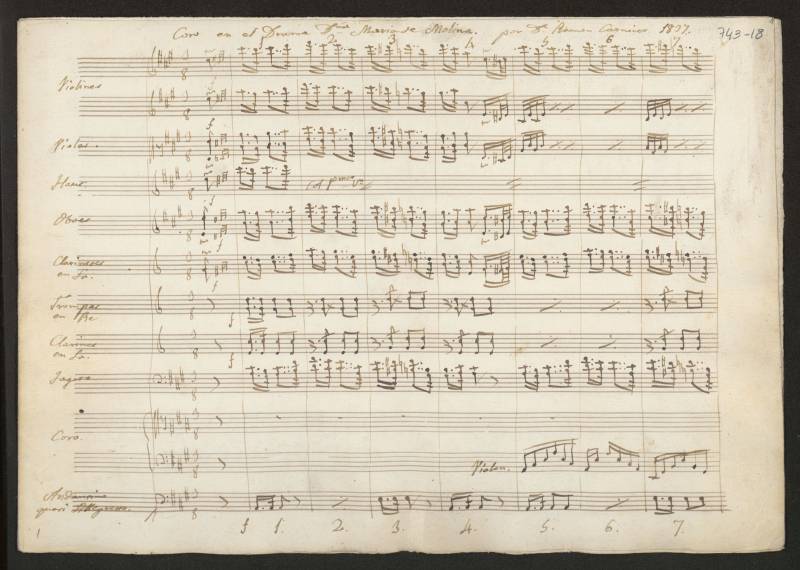 Coro en el Drama Dª Maria de Molina. por Dn Ramon Carnicer 1837. 743-18
2 3 4 5 6 7
Violines
Violas.
Flaut.
Col Pmo Vº
Oboes
Clarinetes
en La.
Trompas
en Re
Clarines
en La.
Fagots
Coro.
Violon.
Andantino
quasi Allegretto.
1. 2. 3. 4. 5. 6. 7.
1